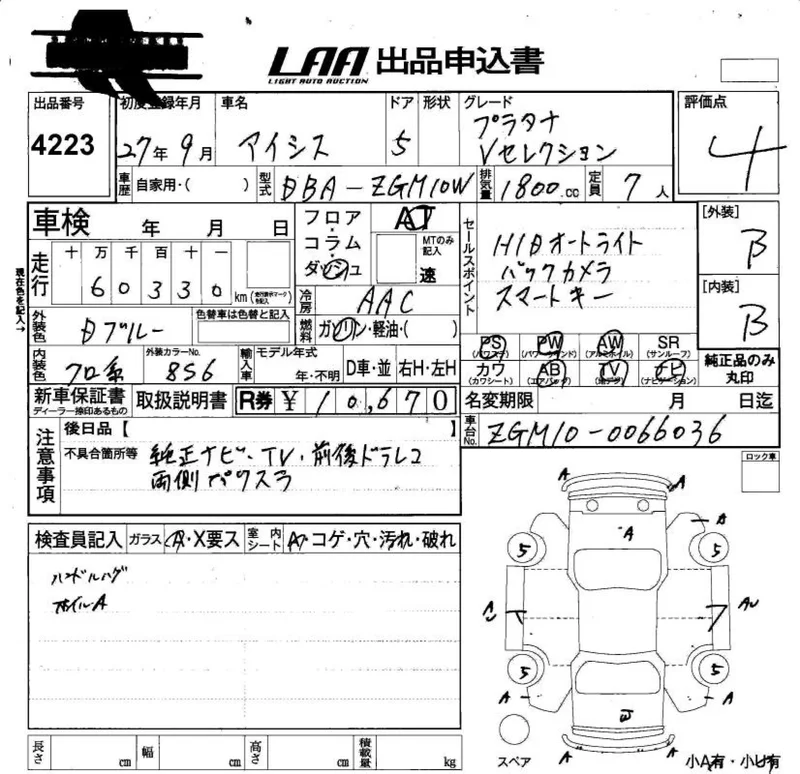 LAA 出品申込書
LIGHT AUTO AUCTION
出品番号 初度登録年月 車名 ドア 形状 グレード 評価点
4223 27年 9月 アイシス 5 プラタナ
Vセレクション 4
車歴 自家用・( ) 型式 DBA-ZGM10W 排気量 1800cc 定員 7人
車検 年 月 日
フロア・コラム・ダッシュ AT
MTのみ記入 速
セールスポイント
HIDオートライト
バックカメラ
スマートキー
[外装] B
[内装] B
現在色を記入→
走行 十 万 千 百 十 一
60330 km (走行表示マークを記入)
冷房 AAC
燃料 ガソリン・軽油・( )
外装色 Dブルー 色替車は色替と記入
内装色 クロ系 外装カラーNo. 8S6 輸入車 モデル年式 年・不明 D車・並 右H・左H
PS (パワステ) PW (パワーウインド) AW (アルミホイル) SR (サンルーフ)
カワ (カワシート) AB (エアバック) TV (地デジ) ナビ (ナビゲーション)
純正品のみ丸印
新車保証書 ディーラー捺印あるもの 取扱説明書 R券 ¥10,670
名変期限 月 日迄
車台No. ZGM10-0066036
注意事項
後日品【 】
不具合箇所等 純正ナビ・TV・前後ドラレコ
両側パワスラ
ロック車
検査員記入 ガラス A・X要ス 室内シート A・コゲ・穴・汚れ・破れ
ハンドルハゲ
ホイルA
A A
A A
5 5
A AU
5 5
A A
W
A A
スペア
小A有・小U有
長さ cm 幅 cm 高さ cm 積載量 kg